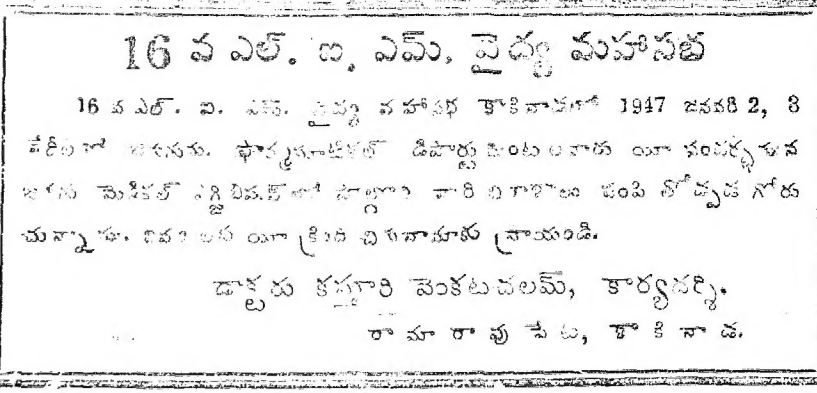 16 వ ఎల్. ఐ. ఎమ్. వైద్య మహాసభ
16 వ ఎల్. ఐ. ఎమ్. వైద్య మహాసభ కాకినాడలో 1947 జనవరి 2, 3
తేదీలలో జరుగును. ఫార్మస్యూటికల్ డిపార్టు మెంటులవారు యీ సందర్భమున
జరుగు మెడికల్ ఎగ్జిబిషన్ లో పాల్గొని వారి విరాళాలు పంపి తోడ్పడ గోరు
చున్నాము. వివరాలకు యీ క్రింది చిరునామాకు వ్రాయండి.
డాక్టరు కస్తూరి వెంకటచలమ్, కార్యదర్శి.
రామారావు పేట, కాకినాడ.